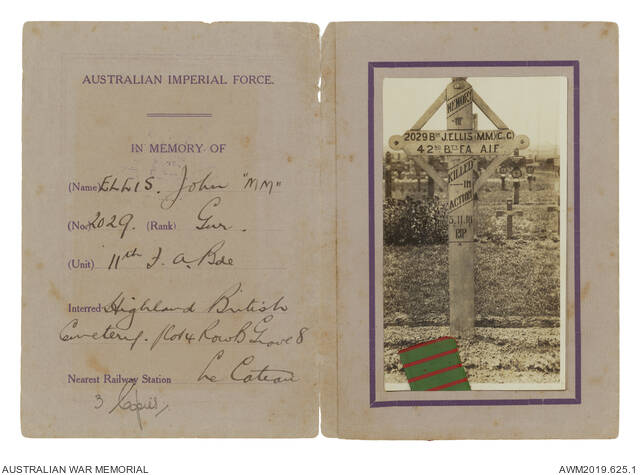 AUSTRALIAN IMPERIAL FORCE.
IN MEMORY OF
(Name) ELLIS. John "MM"
(No.) 2029. (Rank) Gnr.
(Unit) 11th F. A. Bde
Interred Highland British
Cemetery. Plot 4 Row B Grave 8
Nearest Railway Station Le Cateau
3 Copies
MEMORY
2029 BDR J. ELLIS (MM) C.G
42ND BTY FA. A.I.F
KILLED
IN
ACTION
5.11.18
RIP
AUSTRALIAN WAR MEMORIAL
AWM2019.625.1